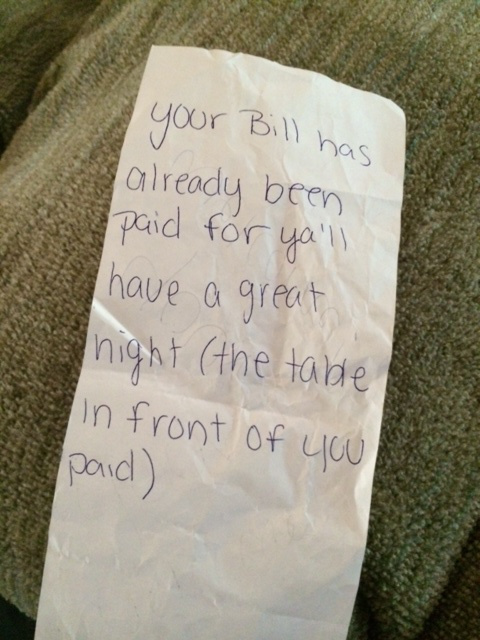 your Bill has
already been
paid for ya'll
have a great
night (the table
in front of you
paid)